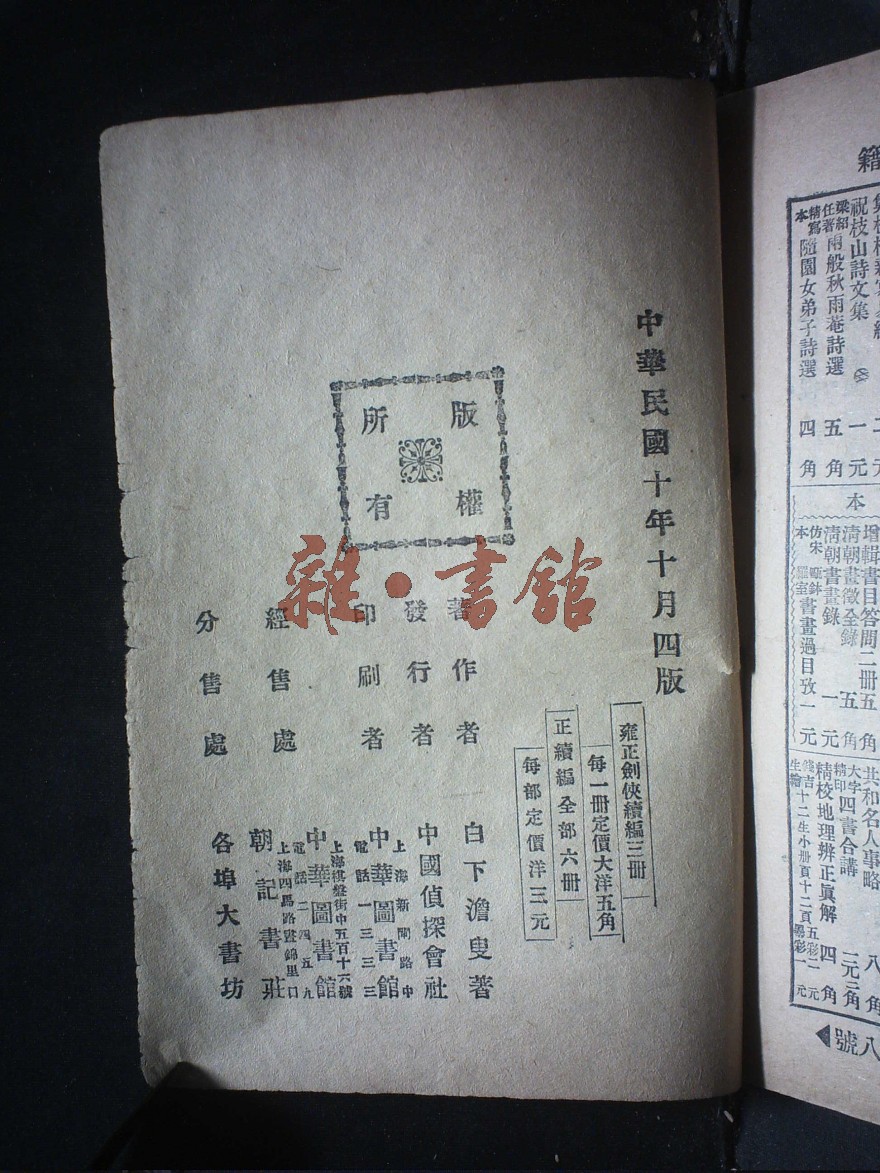 籍
祝枝山詩文集 一元
梁紹任著 兩般秋雨菴詩選 五角
精寫本 隨園女弟子詩選 四角
本
增輯書目答問二冊 五角
清朝畫徵全錄 五角
清朝書畫錄 一元
書畫過目攷 一元
共和名人事略 八角
大字精印 四書合講 二元二角
精校地理辨正眞解 四角
八號
中華民國十年十月四版
雍正劍俠續編三冊
每一冊定價大洋五角
正續編全部六冊
每部定價洋三元
版權所有
著作者 白下澹叟著
發行者 中國偵探會社
印刷者 中華圖書館
上海新閘路中
電話一三三三
經售處 中華圖書館
上海棋盤街中五百十六號
電話二四五九
朝記書莊
上海四馬路晝錦里口
分售處 各埠大書坊
雜·書館